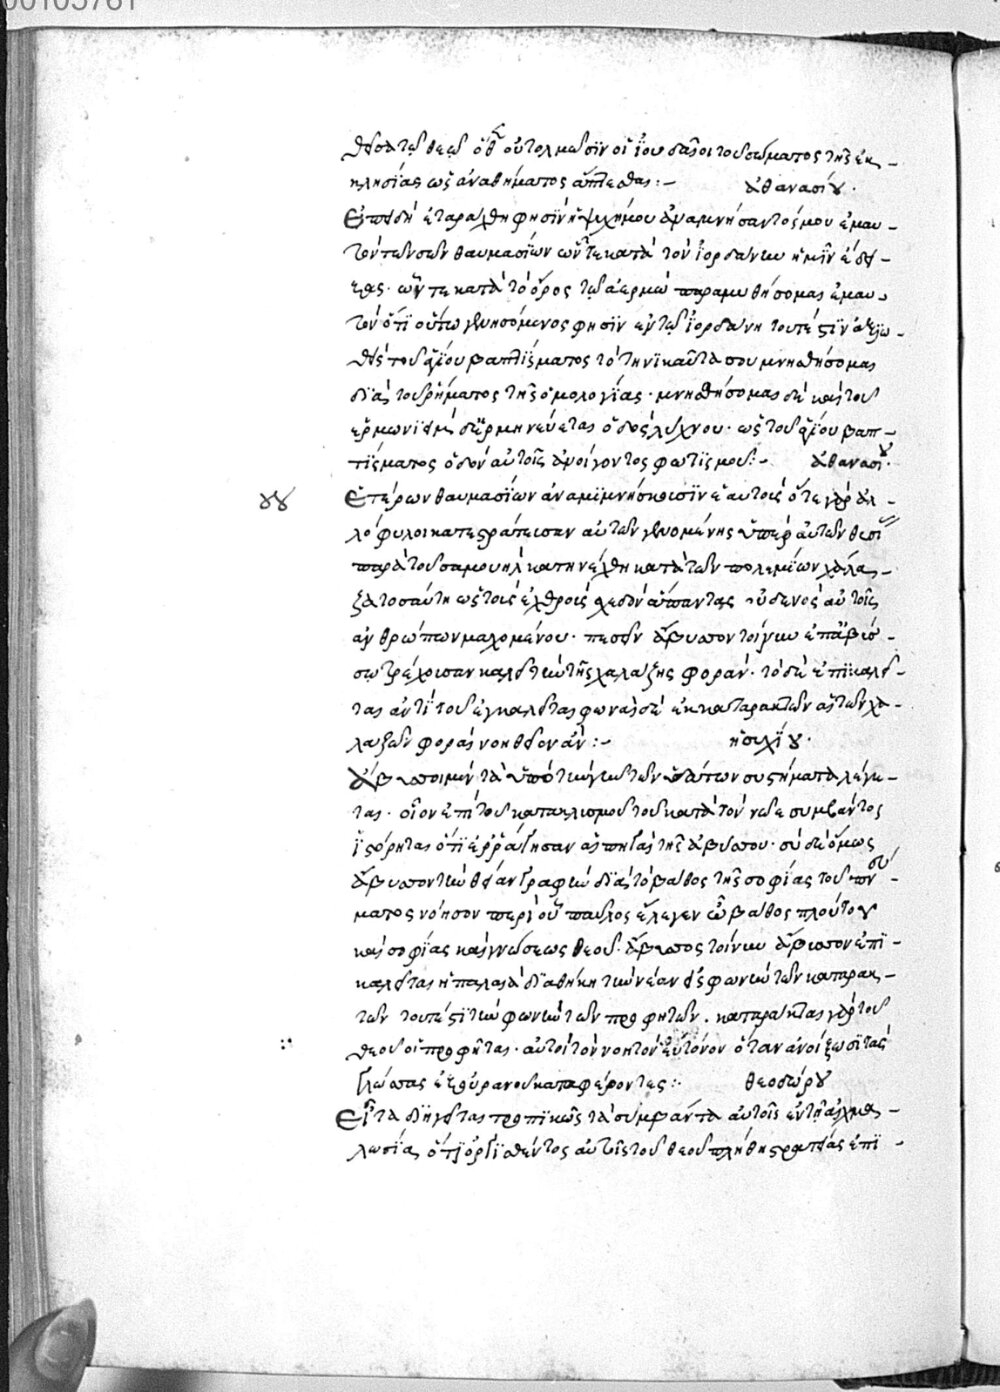 00105761
θεῖσα τῷ θεῷ ὅθεν οὐ τολμῶσιν οἱ ἰουδαῖοι τοῦ σώματος τῆς ἐκ-
κλησίας ὡς ἀναθήματος ἅπτεσθαι:- ἀθανασίου.
Επειδὴ ἐταράχθη φησὶν ἡ ψυχή μου ἀναμνήσαντός μου ἐμαυ-
τὸν τῶν σῶν θαυμασίων ὧν τε κατὰ τὸν ἰορδάνην ἡμῖν ἔδει-
ξας. ὧν τε κατὰ τὸ ὄρος τῷ ἀερμὼ παραμυθήσομαι ἐμαυ-
τὸν ὅτι οὕτω γενησόμενος φησὶν ἐν τῷ ἰορδάνη τουτέστιν ἀξιω-
θεὶς τοῦ ἁγίου βαπτίσματος τὸ τηνικαῦτα σου μνησθήσομαι
διὰ τοῦ ῥήματος τῆς ὁμολογίας. μνησθήσομαι δὲ καὶ τοῦ
ἑρμωνιεὶμ διερμηνεύεται ὁδὸς λύχνου. ὡς τοῦ ἁγίου βαπ-
τίσματος ὁδὸν αὐτοῖς ἀνοίγοντος φωτισμοῦ:- ἀθανασίου.
Ετέρων θαυμασίων ἀναμιμνήσκουσιν ἑαυτοὺς ὅτε γὰρ ἀλ-
λόφυλοι κατεστράτευσαν αὐτῶν γενομένης ὑπὲρ αὐτῶν
παρὰ τοῦ σαμουὴλ κατηνέχθη κατὰ τῶν πολεμίων χάλα-
ζα τοσαύτη ὡς τοὺς ἐχθροὺς σχεδὸν ἅπαντας οὐδενὸς αὐτοῖς
ἀνθρώπων μαχομένου. πεσεῖν ἄβυσσον τοίνυν ἐπ' ἄβυσ-
σω τρέχουσαν καλεῖ τὴν τῆς χαλάζης φοράν. τὸ δὲ ἐπικαλεῖ-
ται ἀντὶ τοῦ ἐγκαλεῖται φωναὶ δὲ ἐκ καταρακτῶν αἱ τῶν χα-
λαζῶν φοραὶ νοηθεῖεν ἄν:- ἡσυχίου.
ἄβυσσοι μὲν τὰ ὑπὸ τὴν γῆν τῶν ὑδάτων συστήματα λέγε-
ται. οἷον ἐπὶ τοῦ κατακλισμοῦ τοῦ κατὰ τὸν νῶε συμβάντος
ἱστόρηται ὅτι ἐρράγησαν αἱ πηγαὶ τῆς ἀβύσσου. σὺ δὲ ὅμως
ἄβυσσον τὴν θείαν γραφὴν διὰ τὸ βάθος τῆς σοφίας τοῦ
ματος νόησον περὶ οὗ παῦλος ἔλεγεν ὦ βάθος πλούτου
καὶ σοφίας καὶ γνώσεως θεοῦ. ἄβυσσος τοίνυν ἄβυσσον ἐπι-
καλεῖται ἡ παλαιὰ διαθήκη τὴν νέαν εἰς φωνὴν τῶν καταρακ-
τῶν τουτέστι τὴν φωνὴν τῶν προφητῶν. καταράκται γὰρ τοῦ
θεοῦ οἱ προφῆται. αὐτοὶ τὸν νοητὸν ὑετὸν ὅταν ἀνοίξωσι τὰς
γλώσσας ἐξ οὐρανοῦ καταφέροντες:- θεοδώρου
Εἶτα διηγεῖται τροπικῶς τὰ συμβάντα αὐτοῖς ἐν τῇ αἰχμα-
λωσίᾳ ὅτι ὀργισθέντος αὐτοῖς τοῦ θεοῦ πλήθη στρατείας ἐπι-